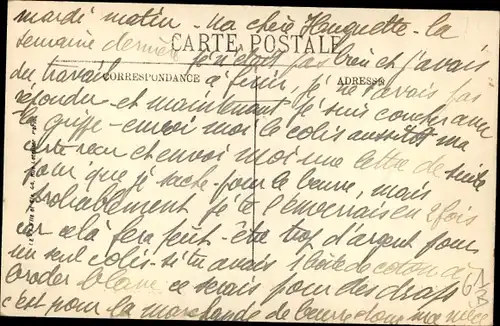 mardi matin - Ma chère Huguette - la
semaine dernière je n'étais pas bien et j'avais
CARTE POSTALE
du travail à finir, je ne t'avais pas
CORRESPONDANCE
ADRESSE
répondu - et maintenant je suis couchée avec
la grippe - envoi moi le colis aussitôt ma
carte reçu et envoi moi une lettre de suite
pour que je sache - pour le beurre, mais
probablement je te l'enverrais en 2 fois
car celà fera peut-être trop d'argent pour
un seul colis - si tu avais 1 boîte de coton à
broder blanc ce serais pour des draps
c'est pour la marchande de beurre